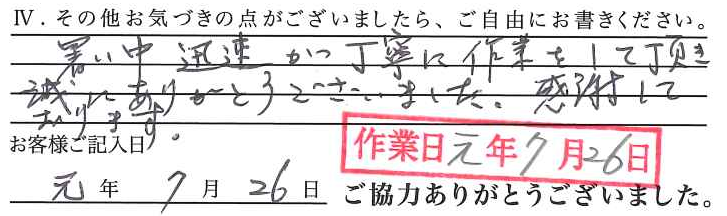 Ⅳ．その他お気づきの点がございましたら、ご自由にお書きください。
暑い中 迅速かつ丁寧に作業をして頂き
誠にありがとうございました。感謝して
おります。
お客様ご記入日
作業日元年7月26日
元年 7月 26日 ご協力ありがとうございました。